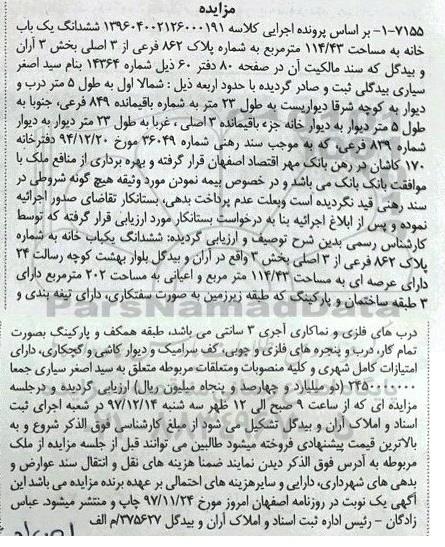 مزایده
۷۱۵۵-۱- بر اساس پرونده اجرایی کلاسه ۱۳۹۶۰۴۰۰۲۱۲۶۰۰۰۱۹۱ ششدانگ یک باب
خانه به مساحت ۱۱۴/۴۳ مترمربع به شماره پلاک ۸۶۲ فرعی از ۳ اصلی بخش ۳ آران
و بیدگل که سند مالکیت آن در صفحه ۸۰ دفتر ۶۰ ذیل شماره ۱۴۳۶۴ بنام سید اصغر
سیاری بیدگلی ثبت و صادر گردیده با حدود اربعه ذیل : شمالا اول به طول ۵ متر درب و
دیوار به کوچه شرقا دیواریست به طول ۲۳ متر به شماره باقیمانده ۸۴۹ فرعی، جنوبا به
طول ۵ متر دیوار به دیوار خانه جزء باقیمانده ۳ اصلی ، غربا به طول ۲۳ متر دیوار به دیوار
شماره ۸۳۹ فرعی، که به موجب سند رهنی شماره ۳۶۰۴۹ مورخ ۹۴/۱۲/۲۰ دفترخانه
۱۷۰ کاشان در رهن بانک مهر اقتصاد اصفهان قرار گرفته و بهره برداری از منافع ملک با
موافقت بانک بانک می باشد و در خصوص بیمه نمودن مورد وثیقه هیچ گونه شروطی در
سند رهنی قید نگردیده است وبعلت عدم پرداخت بدهی، بستانکار تقاضای صدور اجرائیه
نموده و پس از ابلاغ اجرائیه بنا به درخواست بستانکار مورد ارزیابی قرار گرفته که توسط
کارشناس رسمی بدین شرح توصیف و ارزیابی گردیده: ششدانگ یکباب خانه به شماره
پلاک ۸۶۲ فرعی از ۳ اصلی بخش ۳ واقع در آران و بیدگل بلوار بهشت کوچه رسالت ۲۴
دارای عرصه ای به مساحت ۱۱۴/۴۳ متر مربع و اعیانی به مساحت ۲۰۲ مترمربع دارای
۳ طبقه ساختمان و پارکینگ که طبقه زیرزمین به صورت سفتکاری، دارای تیغه بندی و
ParsNamadData
درب های فلزی و نماکاری آجری ۳ سانتی می باشد، طبقه همکف و پارکینگ بصورت
تمام کار، درب و پنجره های فلزی و چوبی، کف سرامیک و دیوار کاشی و گچکاری، دارای
امتیازات کامل شهری و کلیه منصوبات ومتعلقات مربوطه متعلق به سید اصغر سیاری جمعا
۲۴۵۰۰۰۰۰۰۰ (دو میلیارد و چهارصد و پنجاه میلیون ریال) ارزیابی گردیده و درجلسه
مزایده ای که از ساعت ۹ صبح الی ۱۲ ظهر سه شنبه ۹۷/۱۲/۱۴ در شعبه اجرای ثبت
اسناد و املاک آران و بیدگل تشکیل می شود از مبلغ کارشناسی فوق الذکر شروع و به
بالاترین قیمت پیشنهادی فروخته میشود طالبین می توانند قبل از جلسه مزایده از ملک
مربوطه به آدرس فوق الذکر دیدن نمایند ضمنا هزینه های نقل و انتقال سند عوارض و
بدهی های شهرداری، دارایی و سایرهزینه های احتمالی بر عهده برنده مزایده می باشد این
آگهی یک نوبت در روزنامه اصفهان امروز مورخ ۹۷/۱۱/۲۴ چاپ و منتشر میشود. عباس
زادگان - رئیس اداره ثبت اسناد و املاک آران و بیدگل ۳۷۵۶۲۷/م الف